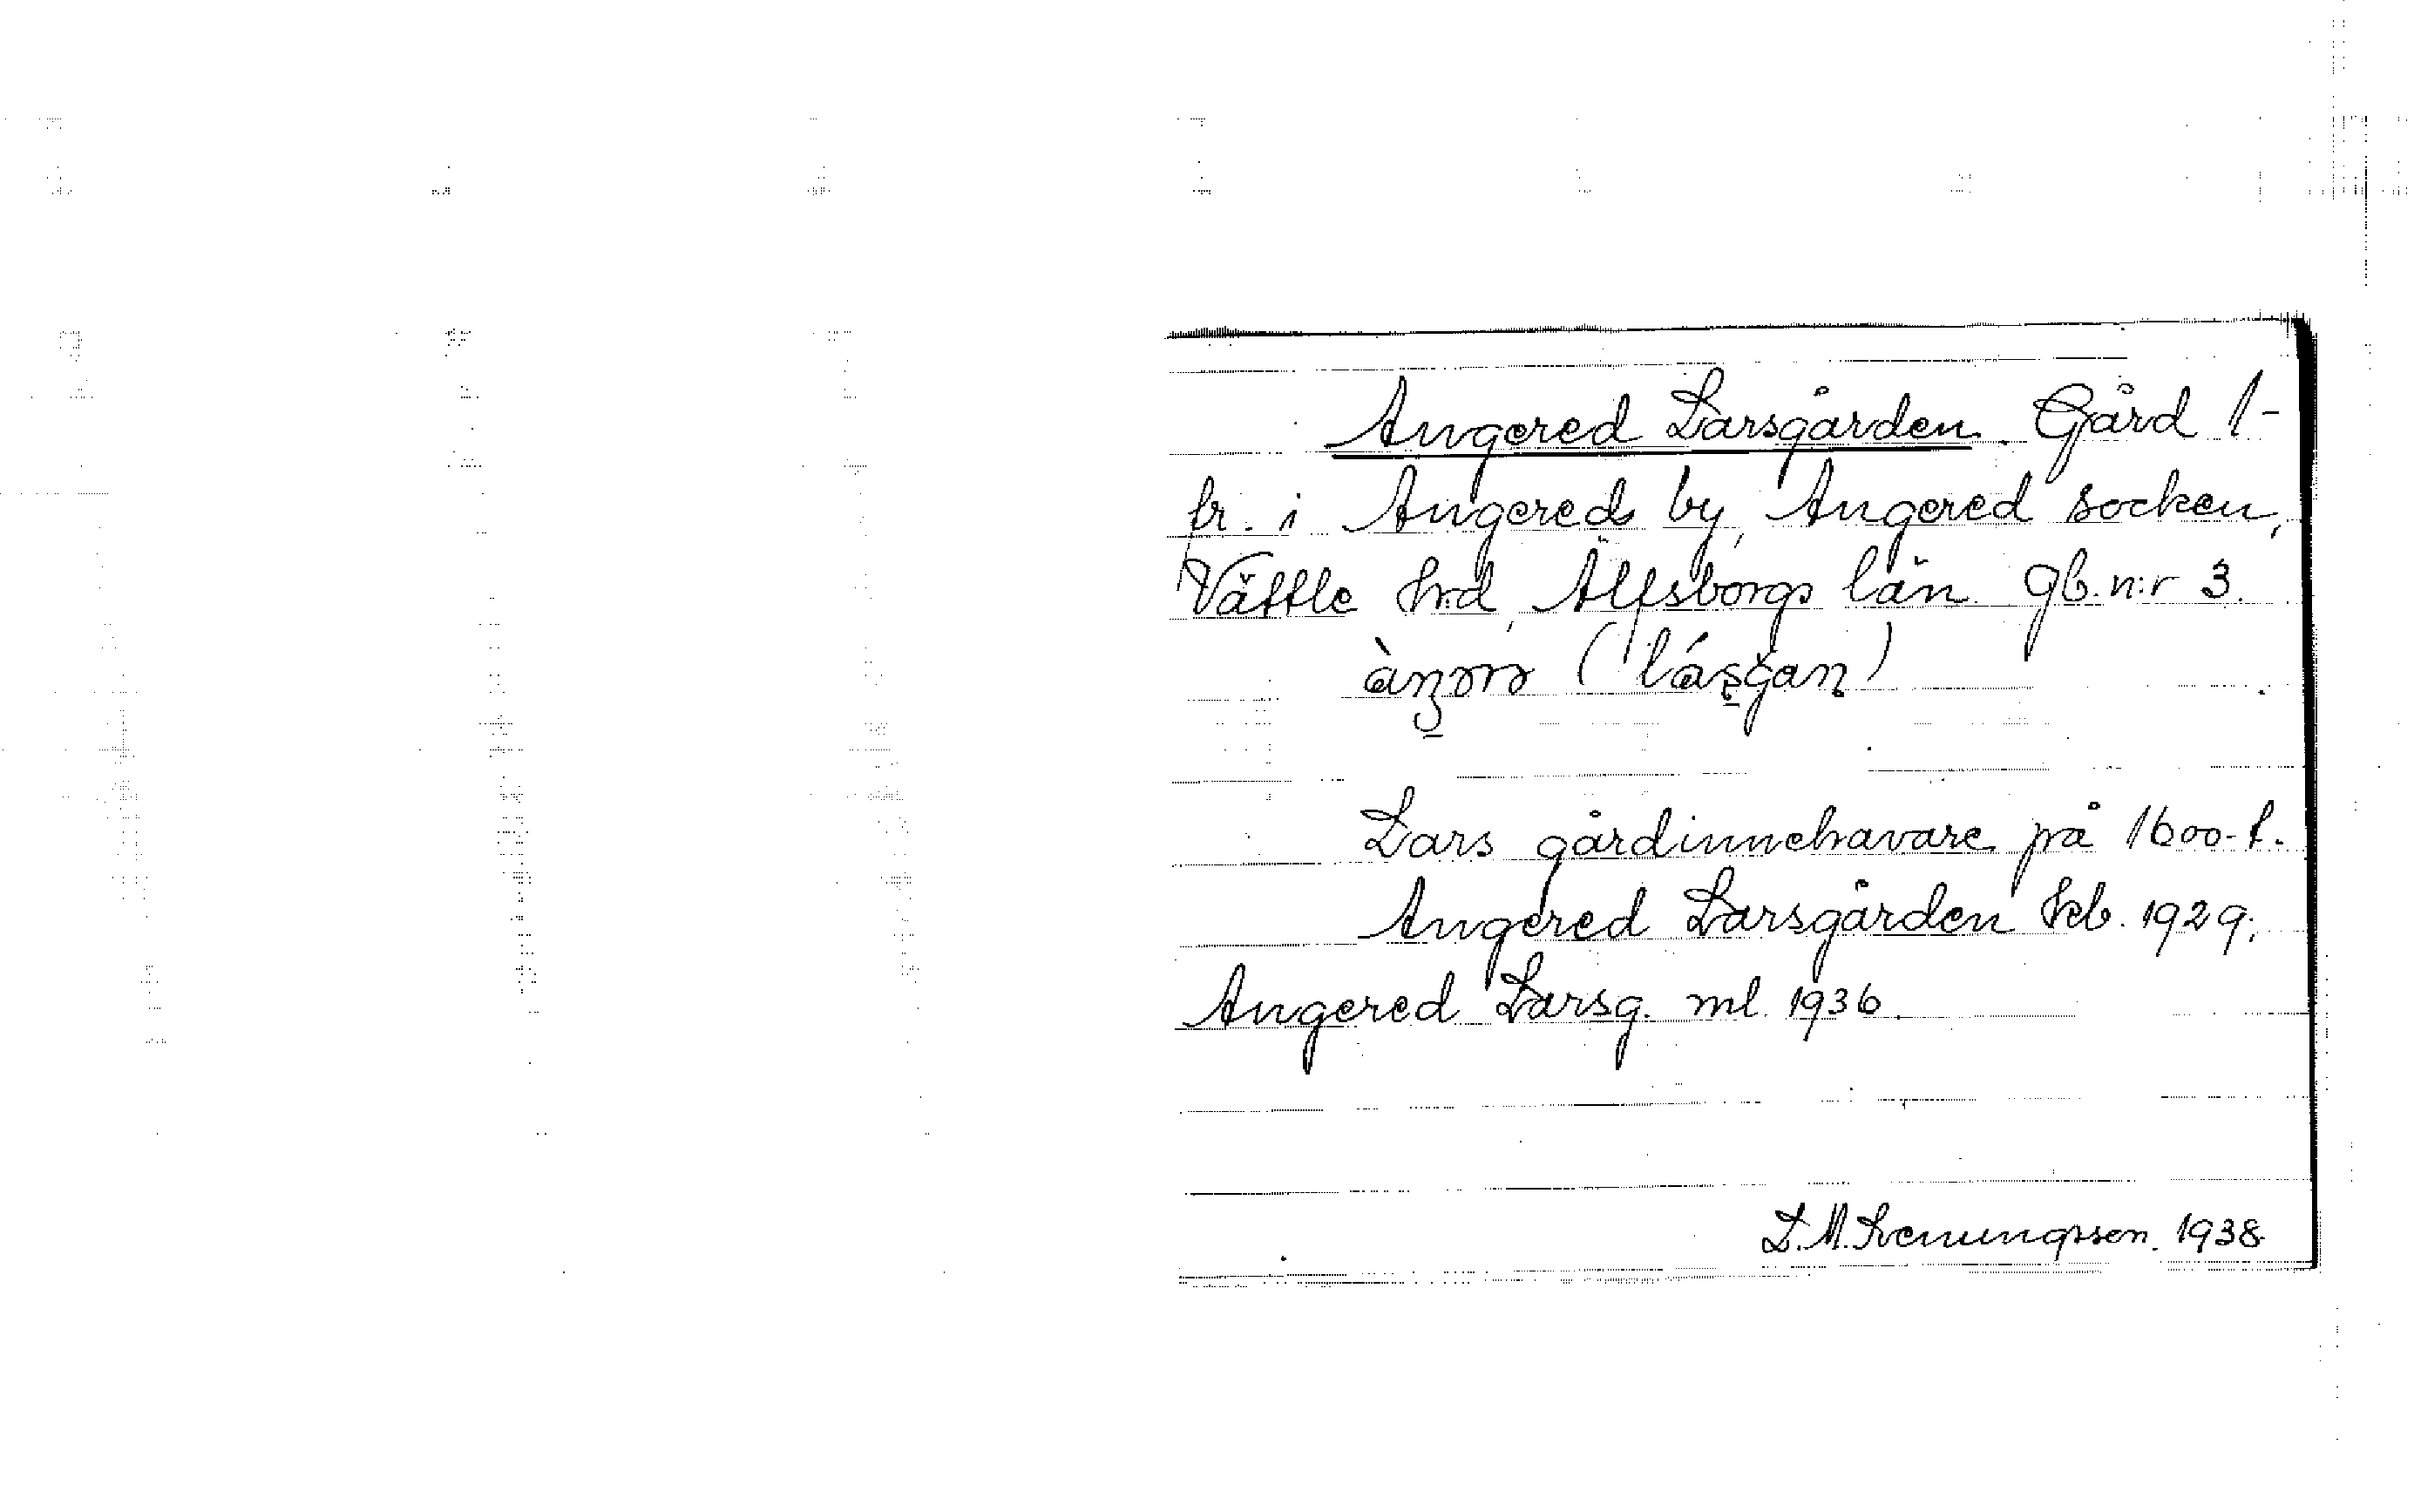 Angered Larsgården. Gård 1-
br. i Angereds by, Angered socken,
Vättle hrd, Älfsborgs län. gb. n:r 3.
Lars gårdinnehavare på 1600-t.
Angered Larsgården kb. 1929.
Angered Larsg. ml. 1936.
L. M. Svenungsson. 1938